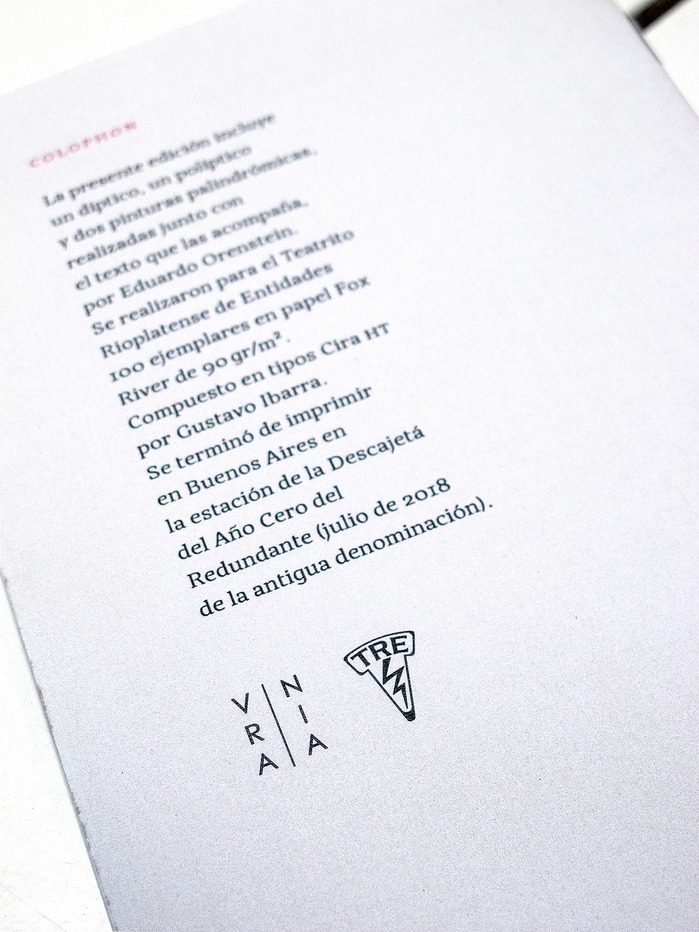 COLOPHON
La presente edición incluye
un díptico, un políptico
y dos pinturas palindrómicas,
realizadas junto con
el texto que las acompaña,
por Eduardo Orenstein.
Se realizaron para el Teatrito
Rioplatense de Entidades
100 ejemplares en papel Fox
River de 90 gr/m².
Compuesto en tipos Cira HT
por Gustavo Ibarra.
Se terminó de imprimir
en Buenos Aires en
la estación de la Descajetá
del Año Cero del
Redundante (julio de 2018
de la antigua denominación).
V N
R I
A A
TRE